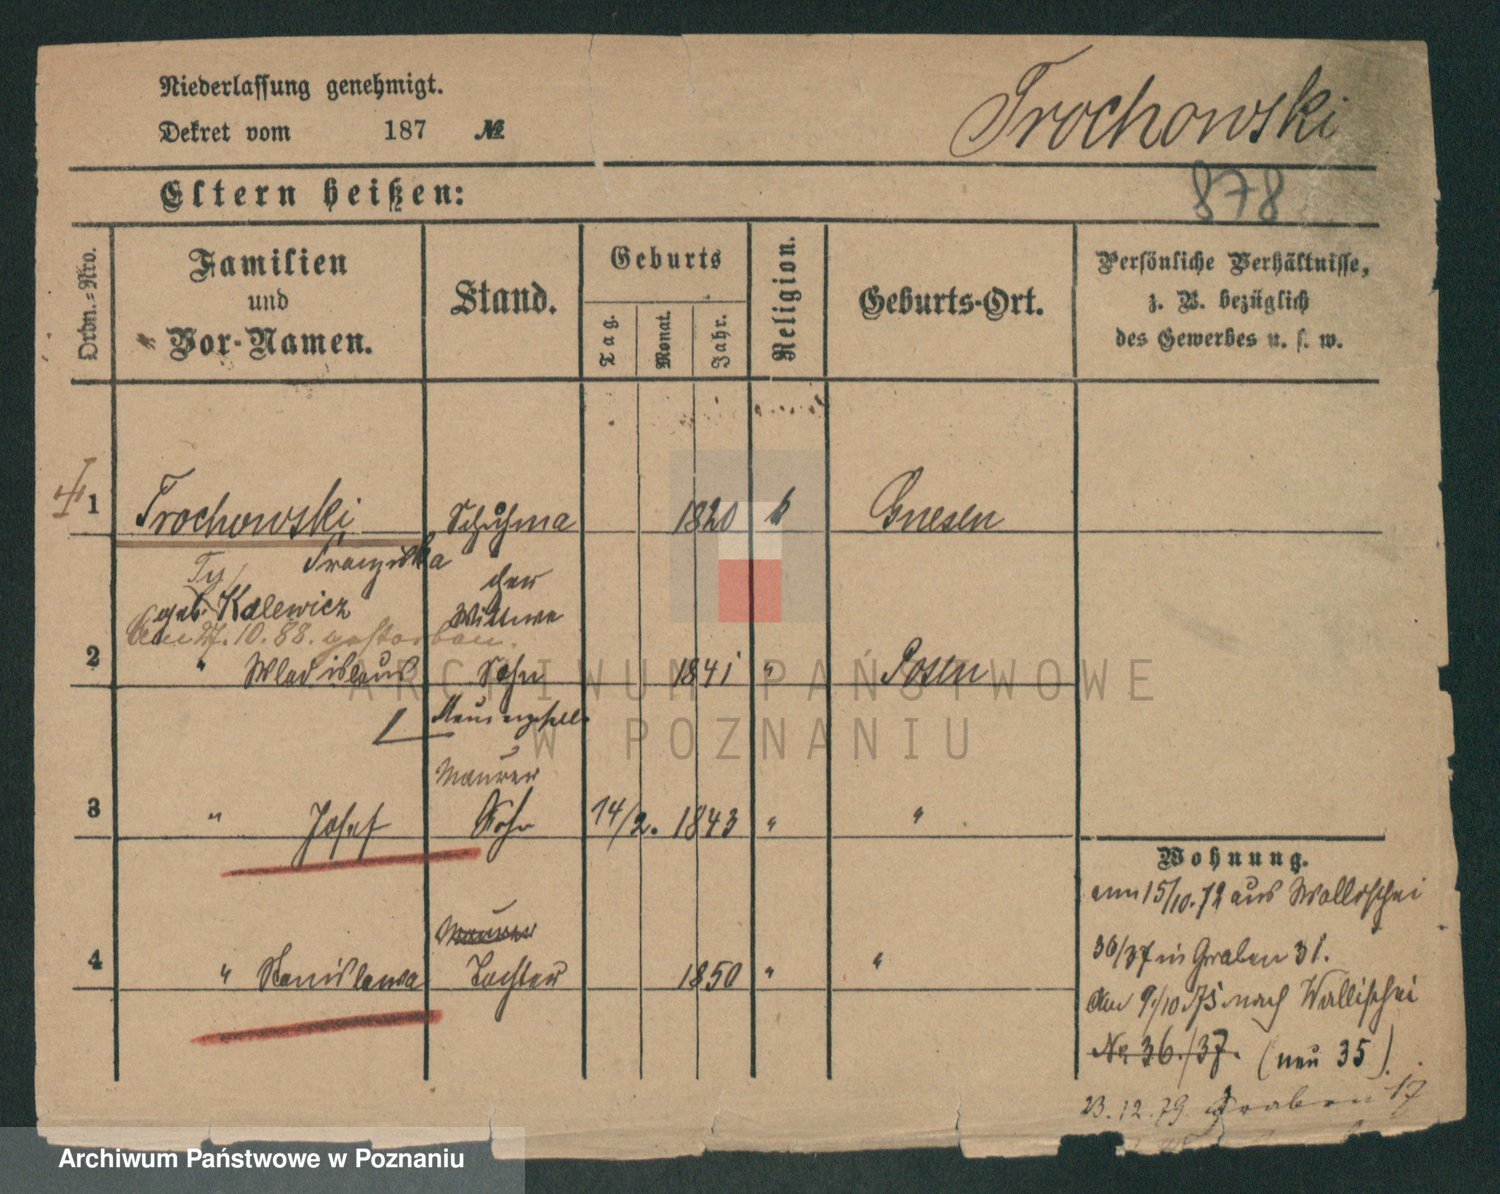 Niederlassung genehmigt.
Dekret vom 187 №
Trochowski
878
Eltern heißen:
Ordn.=Nro.
Familien
und
Vor-Namen.
Stand.
Geburts
Tag.
Monat.
Jahr.
Religion.
Geburts-Ort.
Persönliche Verhältnisse,
z. B. bezüglich
des Gewerbes u. s. w.
1 Trochowski Schuhma 1820 k Gnesen
Franziska cher
geb. Kalewicz Wittwe
27.10.88. gestorben.
2 " Wladislaus Sohn 1841 " Posen
Maurergesell
Maurer
3 " Josef Sohn 14/2. 1843 " "
Wohnung.
am 15/10.72 aus Wallischei
Maurer
36/37 in Graben 31.
4 " Stanislawa Tochter 1850 " "
den 9./10.75 nach Wallischei
No 36./37. (neu 35).
23.12.79. Graben 17
ARCHIWUM PAŃSTWOWE
W POZNANIU
Archiwum Państwowe w Poznaniu